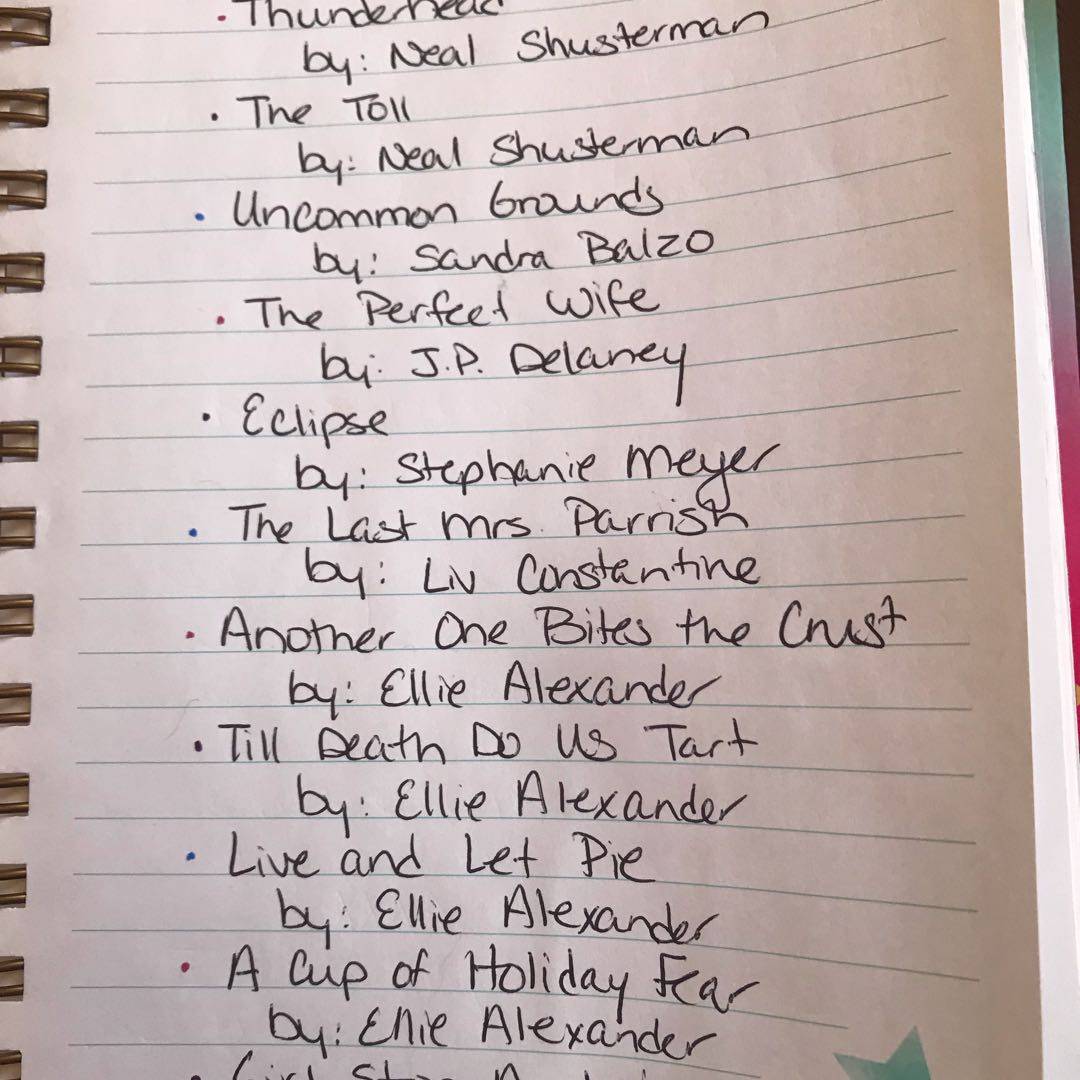 · Thunderhead
by: Neal Shusterman
· The Toll
by: Neal Shusterman
· Uncommon Grounds
by: Sandra Balzo
· The Perfect Wife
by: J.P. Delaney
· Eclipse
by: Stephanie Meyer
· The Last Mrs. Parrish
by: Liv Constantine
· Another One Bites the Crust
by: Ellie Alexander
· Till Death Do Us Tart
by: Ellie Alexander
· Live and Let Pie
by: Ellie Alexander
· A Cup of Holiday Fear
by: Ellie Alexander
· Girl Stop